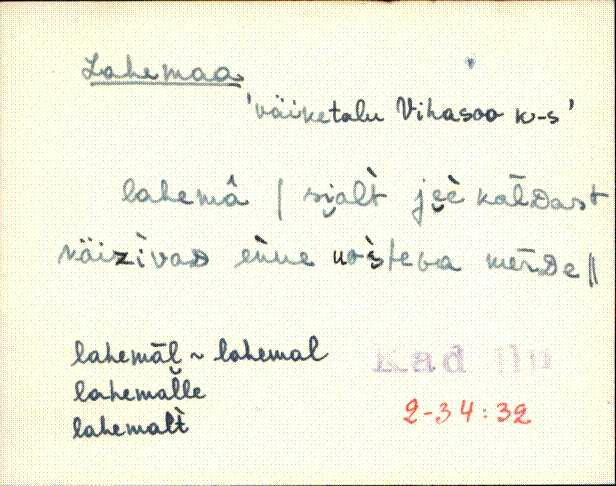 Lahemaa
'väiketalu Vihasoo k-s'
lahemâ | sịal̀t jẹè kāldast
näizìvaᴅ eǹne uòsteva mērᴅe ||
lahemāl ~ lahemal
lahemalle
lahemal̀t
Kad
2-34:32